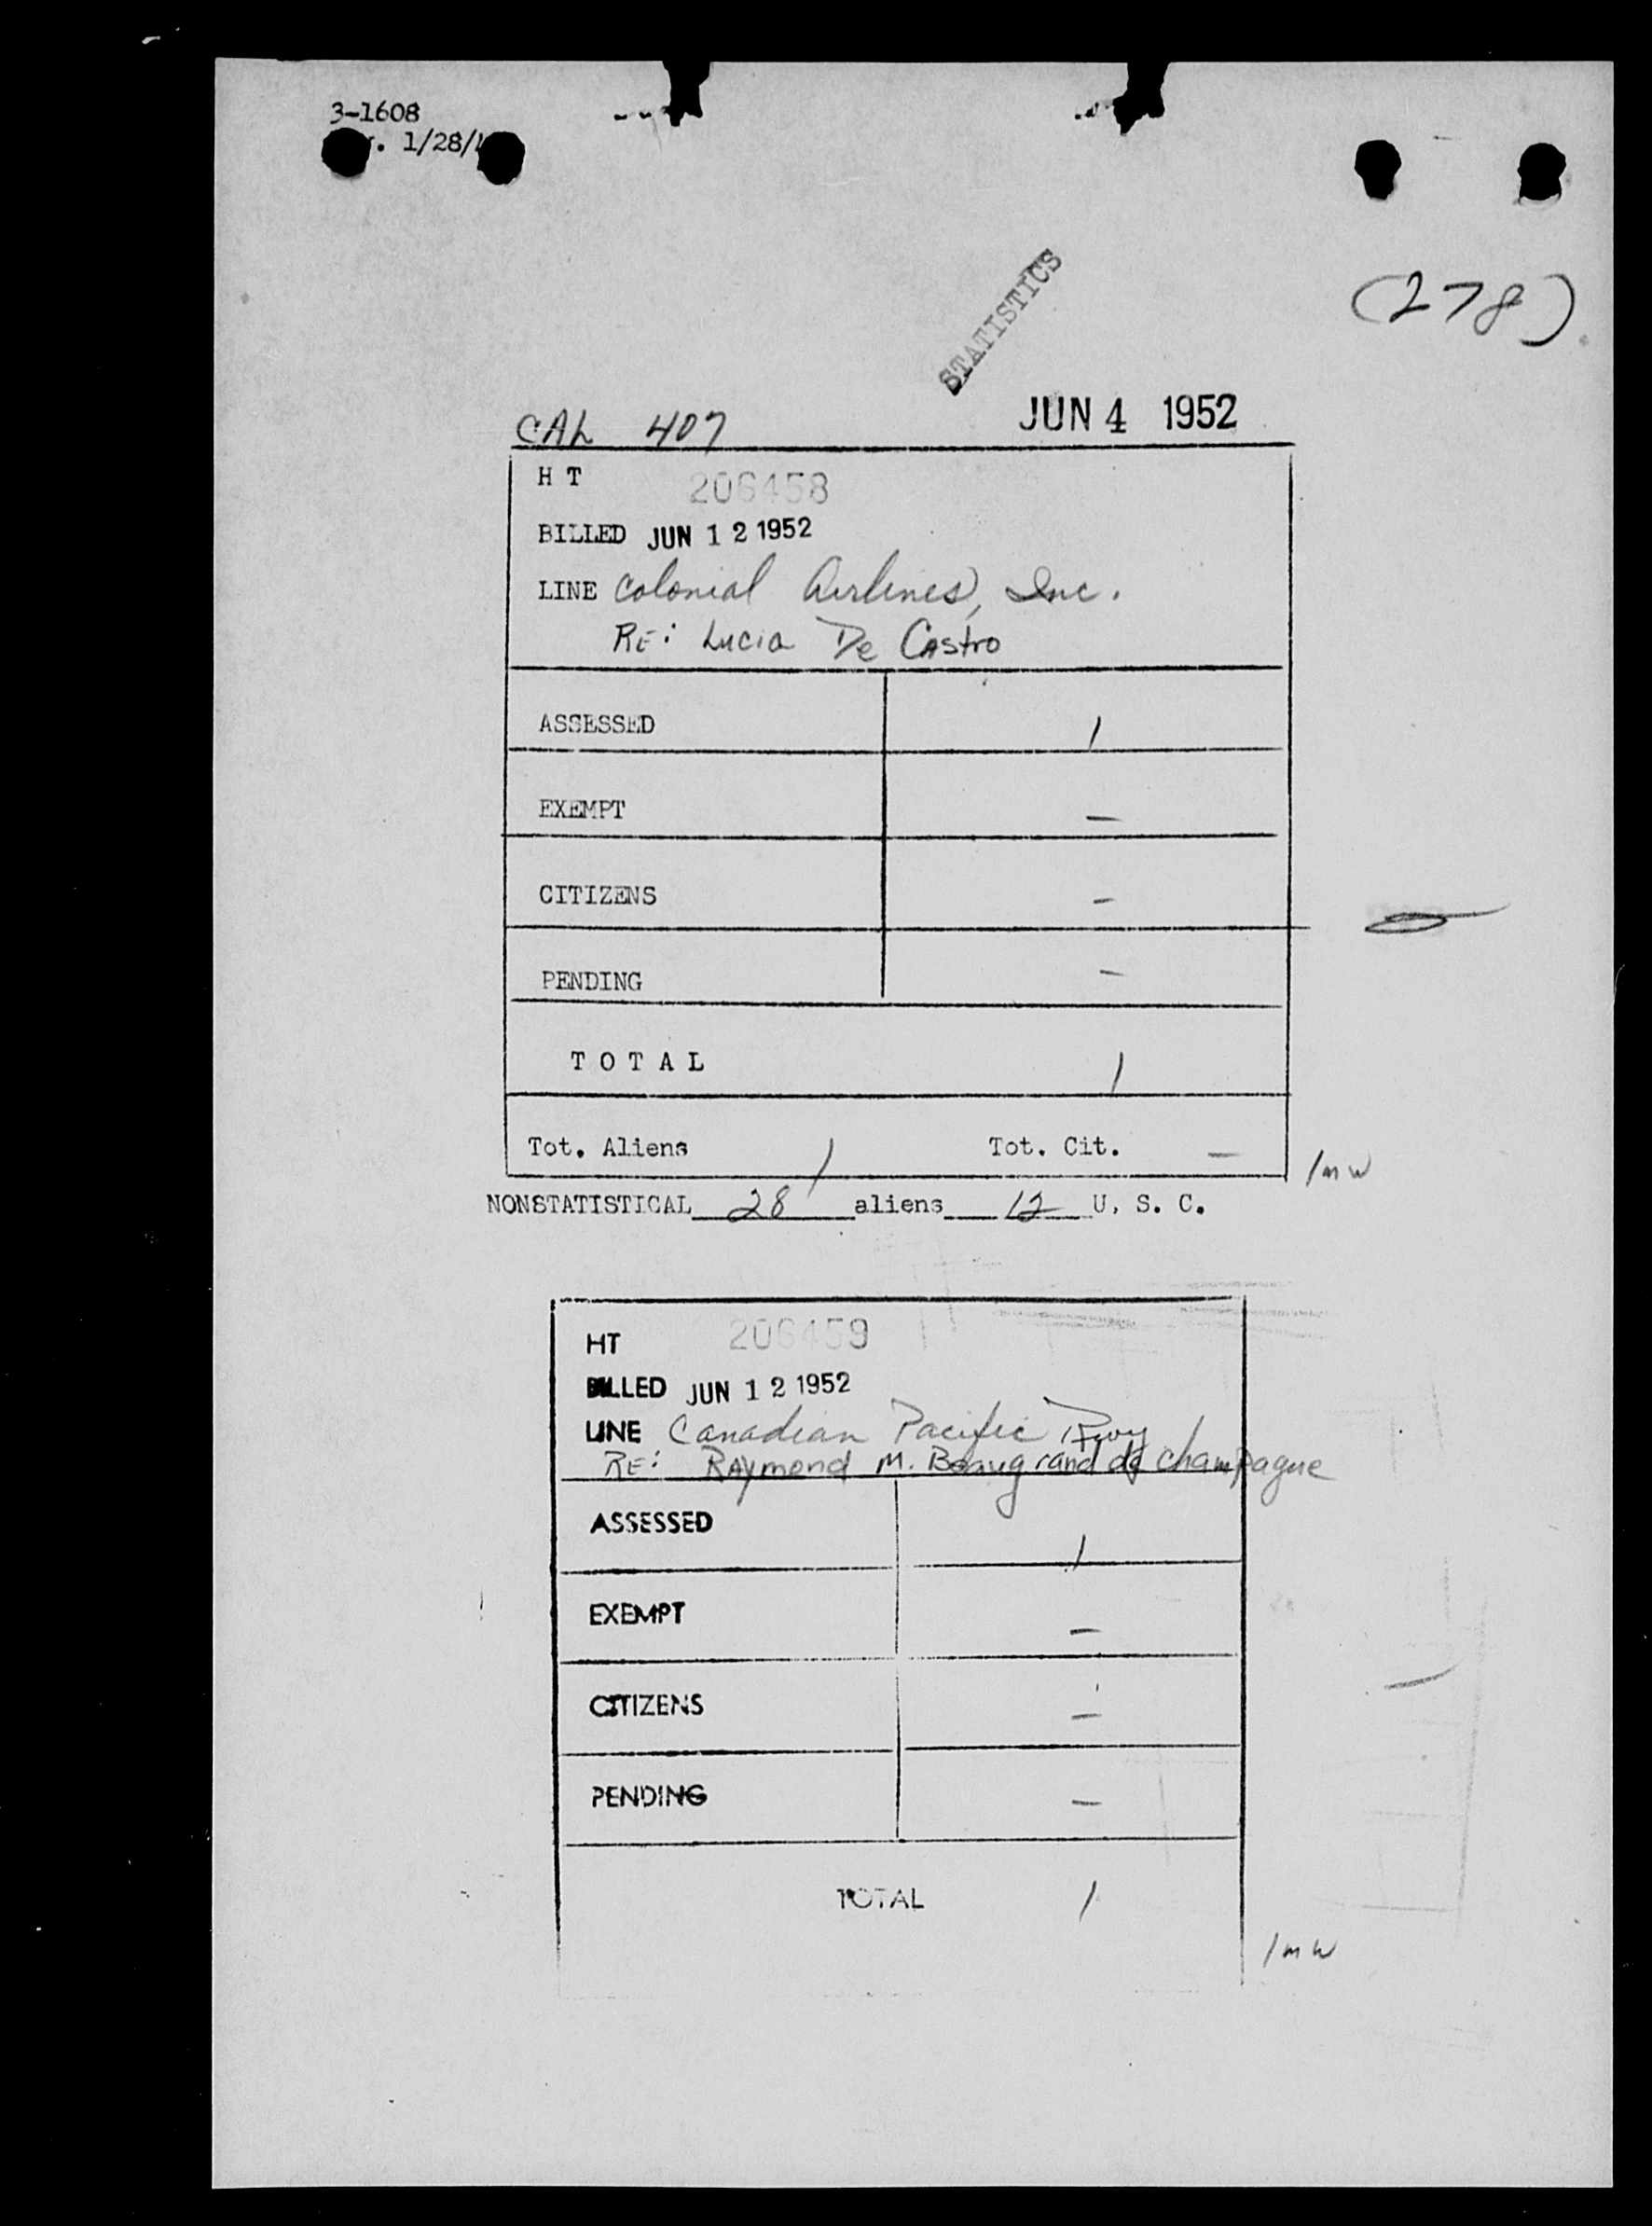 3-1608
1/28/
(278)
STATISTICS
CAL 407 JUN 4 1952
H T 206458
BILLED JUN 12 1952
LINE Colonial Airlines, Inc.
RE: Lucia De Castro
ASSESSED 1
EXEMPT —
CITIZENS —
PENDING —
T O T A L 1
Tot. Aliens 1 Tot. Cit. —
/mw
NONSTATISTICAL 28 aliens 12 U. S. C.
HT 206459
BILLED JUN 12 1952
LINE Canadian Pacific Rwy
RE: Raymond M. Beaugrand de Champagne
ASSESSED 1
EXEMPT —
CITIZENS —
PENDING —
TOTAL 1
/mw